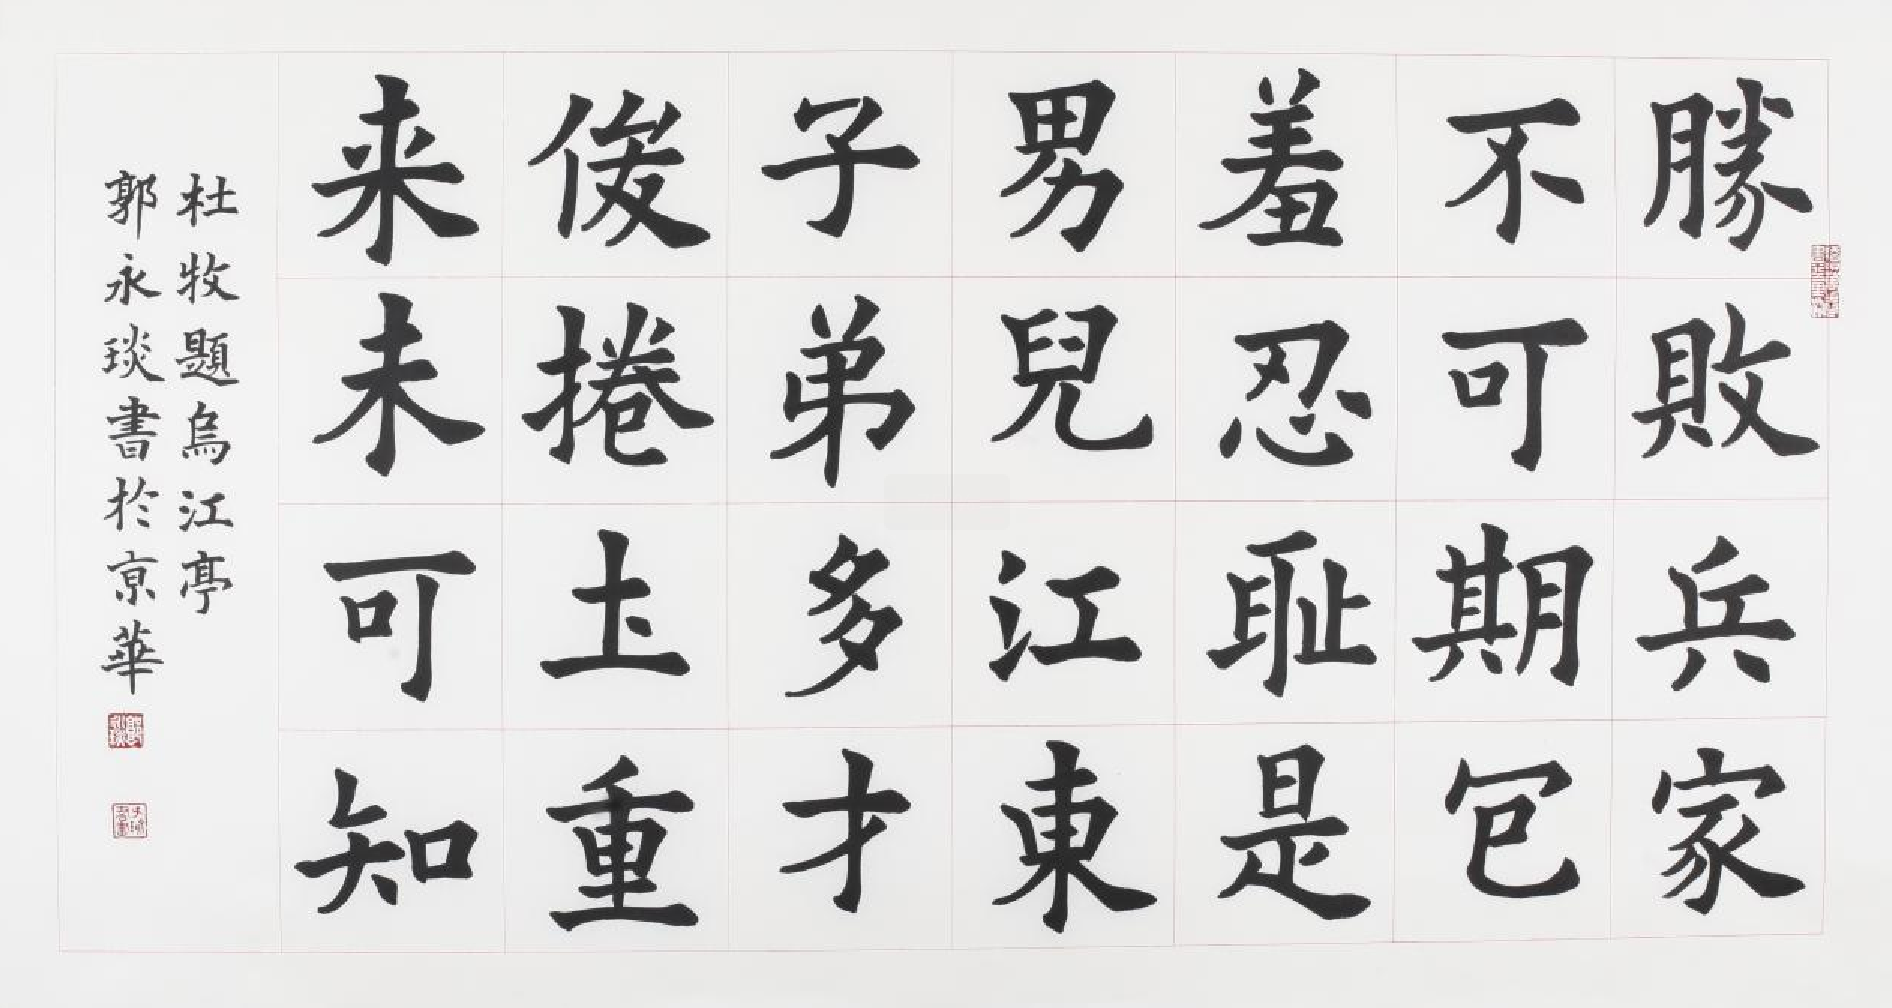 勝敗兵家
不可期包
羞忍恥是
男兒江東
子弟多才
俊捲土重
来未可知
杜牧題烏江亭
郭永琰書於京華